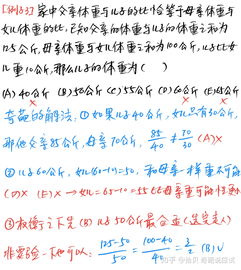 [例83] 家中父亲体重与儿子的比恰等于母亲体重与
女儿体重的比,已知父亲的体重与儿子的体重之和为
125公斤,母亲体重与女儿体重之和为100公斤,儿子比女
儿重10公斤,那么儿子的体重为( )
(A) 40公斤 (B) 50公斤 (C) 55公斤 (D) 60公斤 (E) 65公斤
的解法, ① 如果儿子40公斤, 女儿只有30公斤,
那他父亲85公斤, 母亲70公斤, 85/40 ≠ 70/30 (A)X
② 儿子60公斤, 女儿60-10=50, 和母亲一样重不可能
(D)X (E)X → 女儿=65-10=55比母亲重可能性
③ 权衡之下是(B) 儿子50公斤最合适(选这个)
非要验一下也可以: (125-50)/50 = (100-40)/40 = 3/2 (B)√
知乎